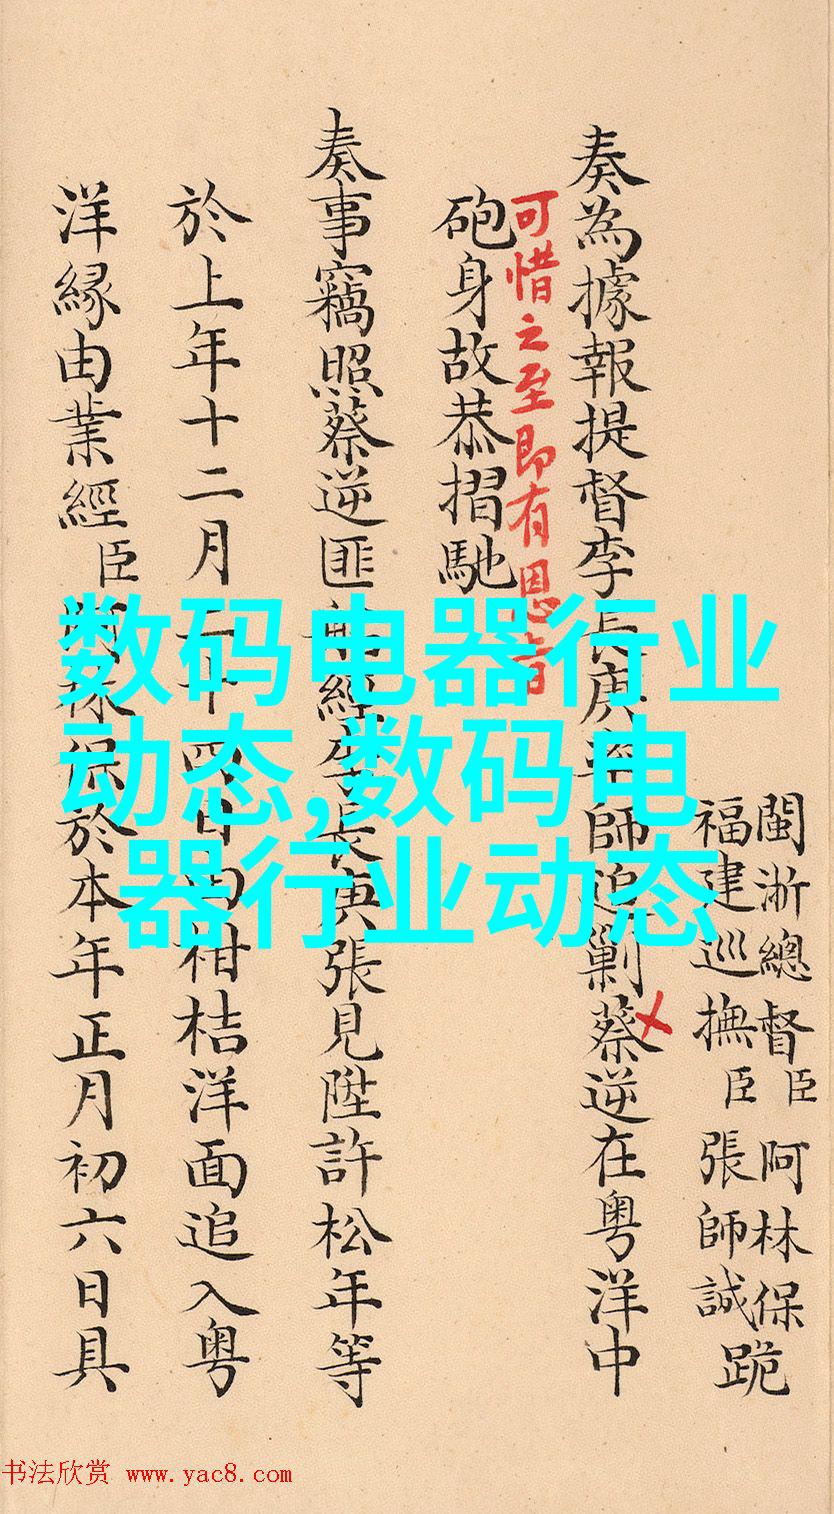 閩浙總督臣阿林保跪
福建巡撫臣張師誠
奏為據報提督李長庚
師追剿蔡逆在粤洋中
可惜之至即有恩旨
砲身故恭摺馳
奏事竊照蔡逆匪
經
長庚張見陞許松年等
於上年十二月
四日
柑桔洋面追入粤
洋緣由業經臣
於本年正月初六日具
数码电器行业
动态,数码电
器行业动态
书法欣赏 www.yac8.com